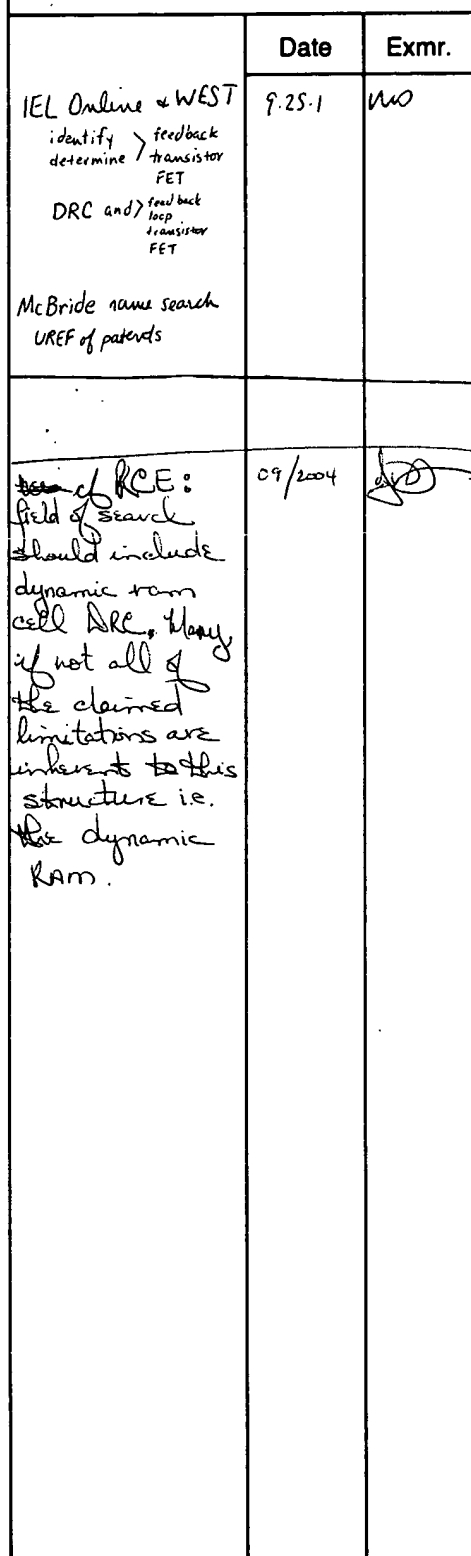 Date Exmr.
IEL Online & WEST 9.25.1
identify > feedback
determine transistor
FET
DRC and > feedback
loop
transistor
FET
McBride name search
UREF of patents
of RCE: 09/2004
field of search
should include
dynamic ram
cell DRC. Many,
if not all of
the claimed
limitations are
inherent to this
structure i.e.
the dynamic
RAM.